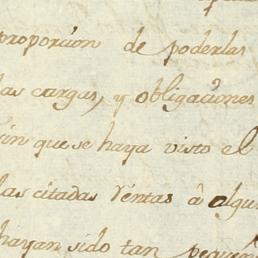 proporcion de poderlas
las cargas, y obligaciones
que se haya visto el
las citadas ventas â algu
hayan sido tan peque